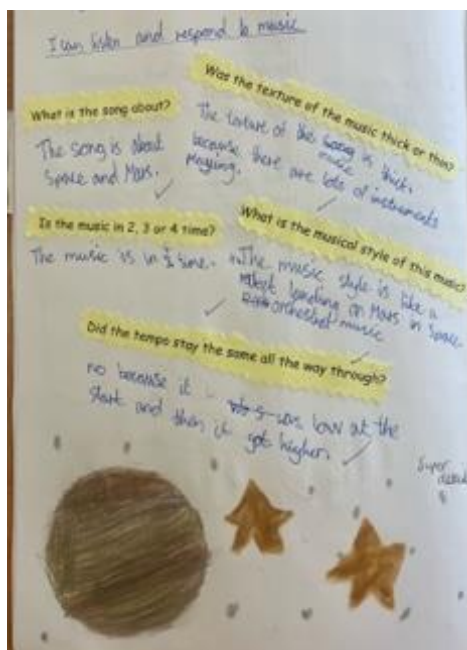 I can listen and respond to music
What is the song about?
The song is about
Space and Mars.
Was the texture of the music thick or thin?
The texture of the song is thick
music
because there are lots of instruments
playing.
Is the music in 2, 3 or 4 time?
The music is in time.
What is the musical style of this music?
The music style is like a
landing on Mars in Space.
music
Did the tempo stay the same all the way through?
no because it was low at the
start and then it got higher.
Super